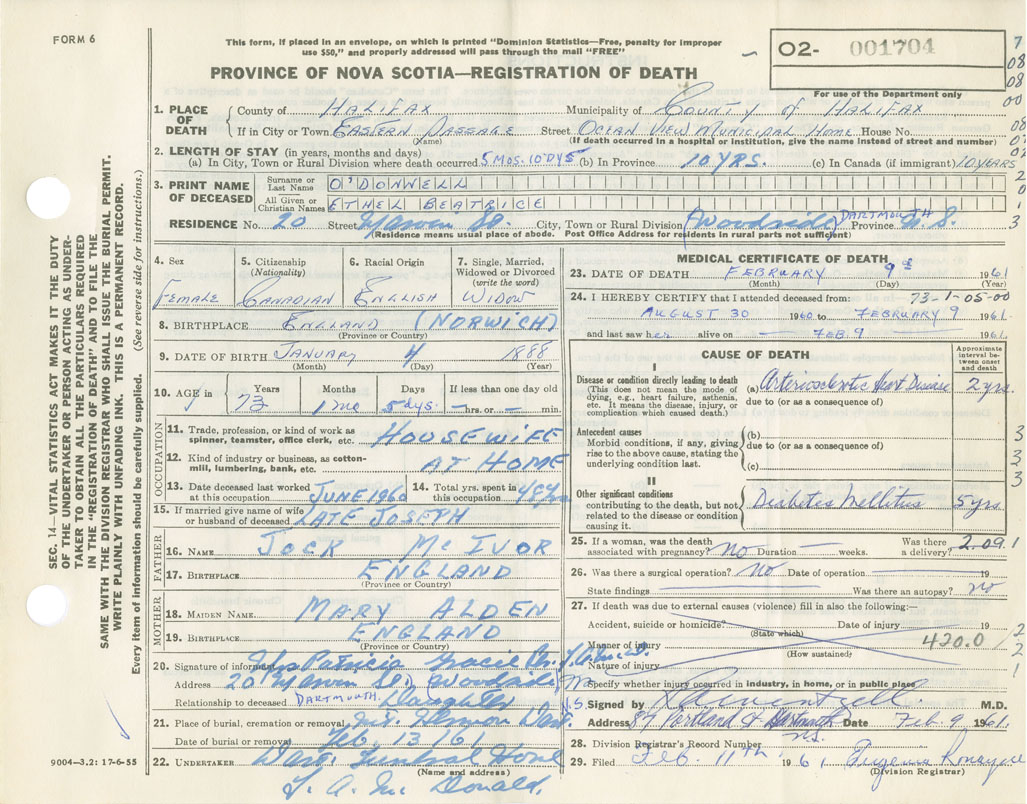 FORM 6
This form, if placed in an envelope, on which is printed "Dominion Statistics—Free, penalty for improper
use $50," and properly addressed will pass through the mail "FREE"
PROVINCE OF NOVA SCOTIA—REGISTRATION OF DEATH
02- 001704
For use of the Department only
7
08
08
00
08
02
02
2
0
1
3
1. PLACE OF DEATH
County of HALIFAX Municipality of COUNTY OF HALIFAX
If in City or Town EASTERN PASSAGE Street OCEAN VIEW MUNICIPAL HOME House No.
(Name) (If death occurred in a hospital or institution, give the name instead of street and number)
2. LENGTH OF STAY (in years, months and days)
(a) In City, Town or Rural Division where death occurred 5 MOS. 10 DYS (b) In Province 10 YRS. (c) In Canada (if immigrant) 10 YEARS
3. PRINT NAME OF DECEASED
Surname or Last Name O'DONNELL
All Given or Christian Names ETHEL BEATRICE
RESIDENCE No. 20 Street St. City, Town or Rural Division (Woodside) DARTMOUTH Province N.S.
(Residence means usual place of abode. Post Office Address for residents in rural parts not sufficient)
4. Sex
FEMALE
5. Citizenship (Nationality)
CANADIAN
6. Racial Origin
ENGLISH
7. Single, Married, Widowed or Divorced (write the word)
WIDOW
8. BIRTHPLACE ENGLAND (NORWICH)
(Province or Country)
9. DATE OF BIRTH JANUARY 4 1888
(Month) (Day) (Year)
10. AGE in
Years 73
Months 1 mo
Days 5 days.
If less than one day old
— hrs. or — min.
OCCUPATION
11. Trade, profession, or kind of work as spinner, teamster, office clerk, etc. HOUSEWIFE
12. Kind of industry or business, as cotton-mill, lumbering, bank, etc. AT HOME
13. Date deceased last worked at this occupation JUNE 1960
14. Total yrs. spent in this occupation 48 yrs
15. If married give name of wife or husband of deceased LATE JOSEPH
FATHER
16. NAME JOCK McIVOR
17. BIRTHPLACE ENGLAND
(Province or Country)
MOTHER
18. MAIDEN NAME MARY ALDEN
19. BIRTHPLACE ENGLAND
(Province or Country)
20. Signature of informant Mrs Patricia
Address 20 St. (Woodside)
Relationship to deceased DARTMOUTH N.S. Daughter
21. Place of burial, cremation or removal Mt. Hermon Dart.
Date of burial or removal Feb. 13/61
22. UNDERTAKER Dart. Funeral Home
(Name and address)
A. Mc Donald.
9004—3.2: 17-6-55
SEC. 14—VITAL STATISTICS ACT MAKES IT THE DUTY
OF THE UNDERTAKER OR PERSON ACTING AS UNDER-
TAKER TO OBTAIN ALL THE PARTICULARS REQUIRED
IN THE "REGISTRATION OF DEATH" AND TO FILE THE
SAME WITH THE DIVISION REGISTRAR WHO SHALL ISSUE THE BURIAL PERMIT.
WRITE PLAINLY WITH UNFADING INK. THIS IS A PERMANENT RECORD.
Every item of information should be carefully supplied. (See reverse side for instructions.)
MEDICAL CERTIFICATE OF DEATH
23. DATE OF DEATH FEBRUARY 9 1961
(Month) (Day) (Year)
24. I HEREBY CERTIFY that I attended deceased from: 73-1-05-00
AUGUST 30 1960 to FEBRUARY 9 1961
and last saw her alive on FEB. 9 1961
CAUSE OF DEATH
Approximate interval between onset and death
I
Disease or condition directly leading to death (This does not mean the mode of dying, e.g., heart failure, asthenia, etc. It means the disease, injury, or complication which caused death.)
(a) Arteriosclerotic Heart Disease 2 yrs.
due to (or as a consequence of)
Antecedent causes
Morbid conditions, if any, giving rise to the above cause, stating the underlying condition last.
(b)
due to (or as a consequence of)
(c)
II
Other significant conditions contributing to the death, but not related to the disease or condition causing it.
Diabetes Mellitus 5 yrs.
3
3
3
3
25. If a woman, was the death associated with pregnancy? no Duration weeks. Was there a delivery? 2.09.1
26. Was there a surgical operation? no Date of operation 19
State findings Was there an autopsy? no
27. If death was due to external causes (violence) fill in also the following:—
Accident, suicide or homicide? Date of injury 19
(State which)
Manner of injury 420.0
(How sustained)
Nature of injury
Specify whether injury occurred in industry, in home, or in public place
Signed by M.D.
Address 87 Portland St Dartmouth N.S. Date Feb. 9 1961.
28. Division Registrar's Record Number
29. Filed Feb. 11th 1961
(Division Registrar)